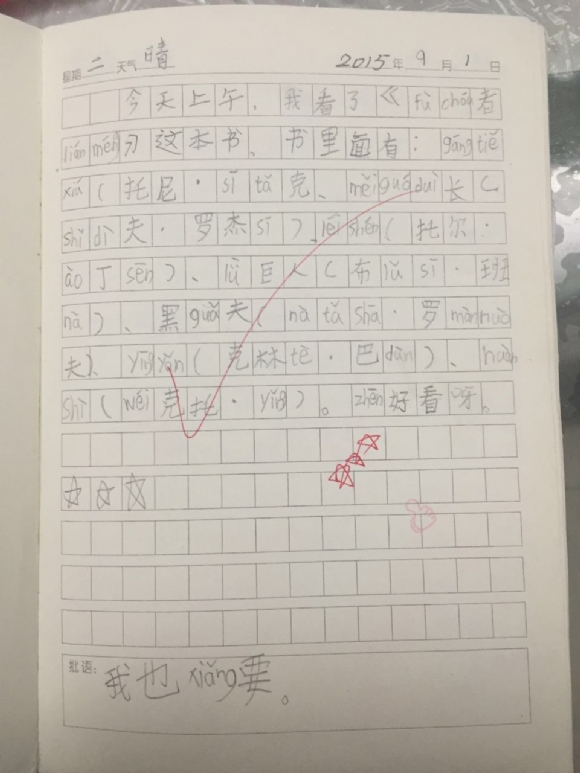 星期 二 天气 晴 2015年 9月 1日
今天上午，我看了《fù chóu者
lián méng》这本书、书里面有：gāng tiě
xiá（托尼·sī tǎ克、měi guó duì长（
shǐ dì夫·罗杰sī）、léi shén（托尔：
ào丁sēn）、lǜ巨人（布lǔ sī·班
nà）、黑guǎ夫（nà tǎ shā·罗màn nuò
夫）、yīng yǎn（克林tè·巴dùn）、huàn
shì（wéi克托·yīng）。zhēn好看呀。
批语：我也xiǎng要。